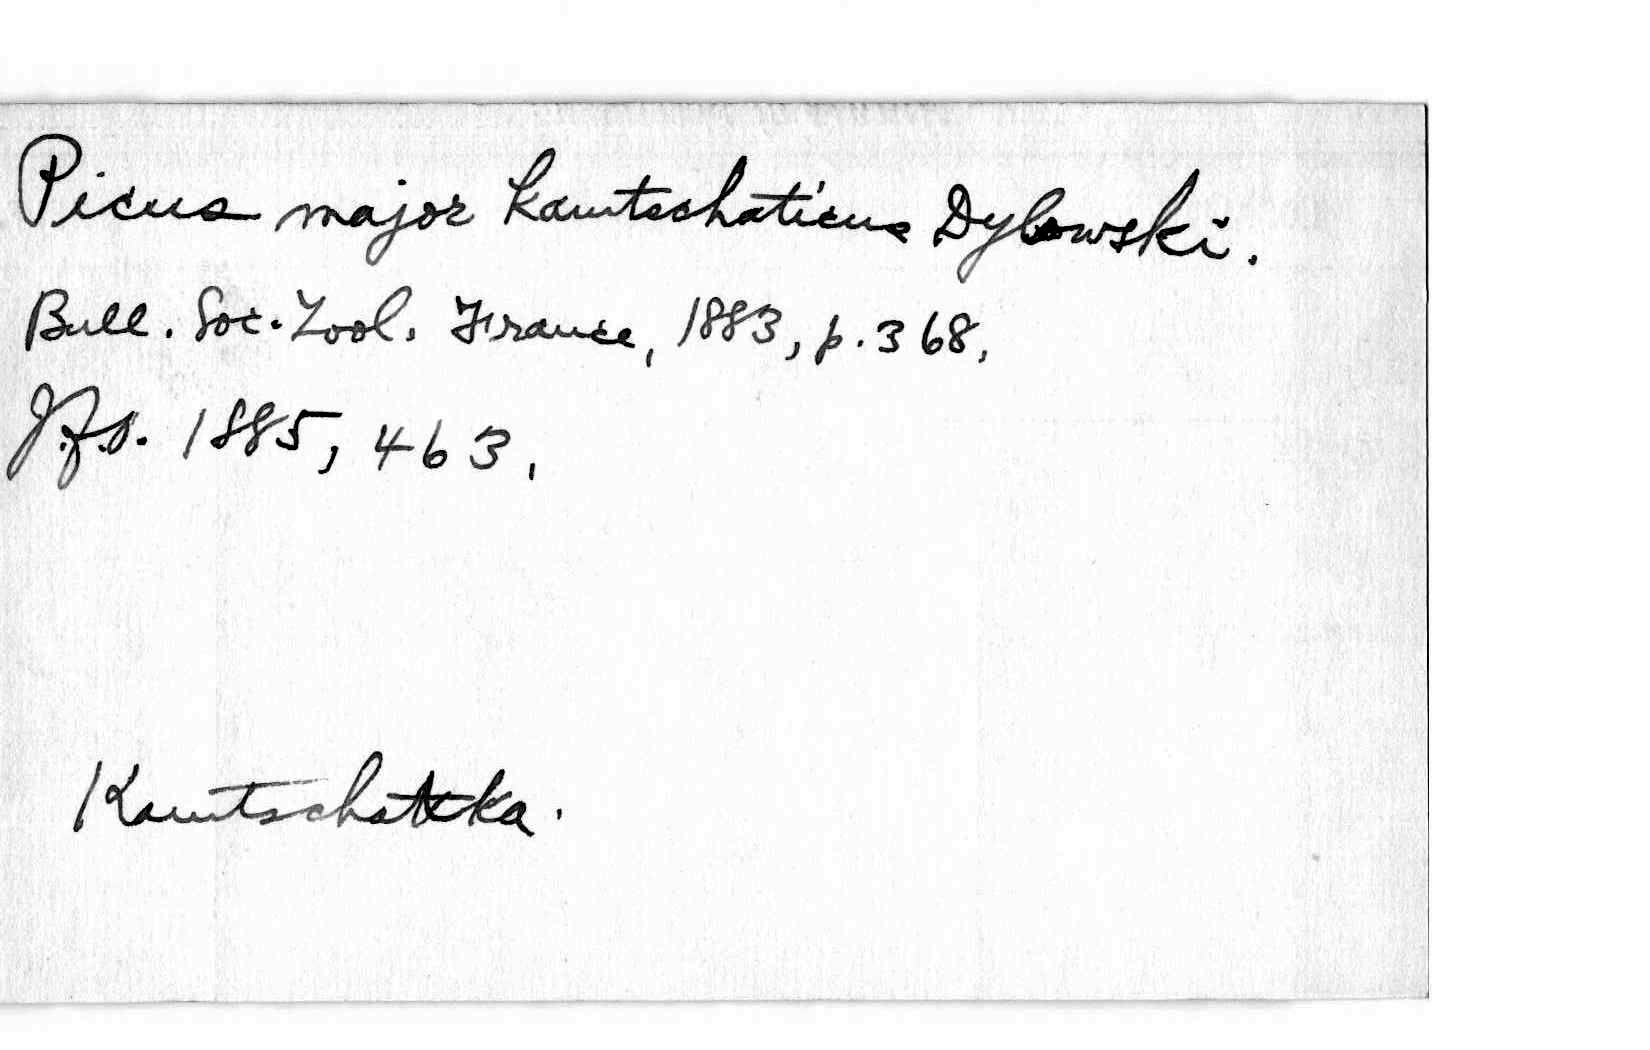 Picus major kamtschaticus Dybowski.
Bull. Soc. Zool. France, 1883, p. 368.
J.f.O. 1885, 463.
Kamtschatka.